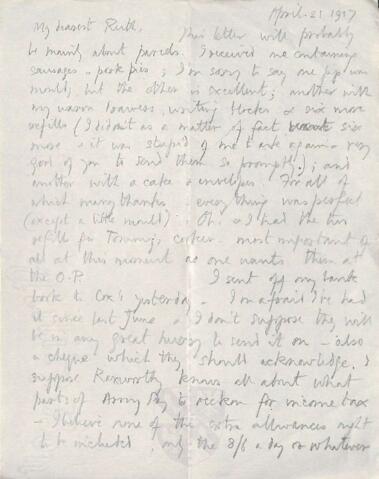 April. 21 1917
My dearest Ruth, This letter will probably
be mainly about parcels. I received one containing
sausages & pork pies; I'm sorry to say one pie was
mouldy but the other is excellent; another with
my warm drawers, writing blocks & six more
refills (I didn't as a matter of fact want six
more & it was stupid of me to ask again - very
good of you to send them so promptly); and
another with a cake & envelopes. For all of
which many thanks everything was perfect
(except a little mould). Oh & I had the tin
refill for Tommy's cooker most important of
all at this moment as one wants them at
the O.P. I sent off my bank
book to Cox's yesterday - I'm afraid I've had
it since last June & I don't suppose they will
be in any great hurry to send it on - also
a cheque which they should acknowledge. I
suppose Raxworthy knows all about what
parts of Army Pay to reckon for income tax
- I believe none of the extra allowances ought
to be included, only the 8/6 a day or whatever